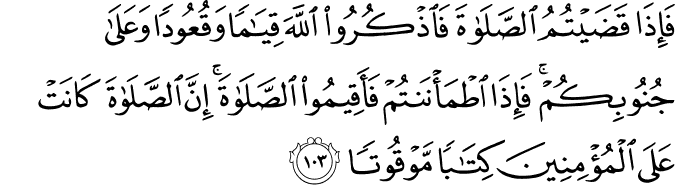 فَإِذَا قَضَيْتُمُ ٱلصَّلَوٰةَ فَٱذْكُرُوا۟ ٱللَّهَ قِيَـٰمًا وَقُعُودًا وَعَلَىٰ
جُنُوبِكُمْ ۚ فَإِذَا ٱطْمَأْنَنتُمْ فَأَقِيمُوا۟ ٱلصَّلَوٰةَ ۚ إِنَّ ٱلصَّلَوٰةَ كَانَتْ
عَلَى ٱلْمُؤْمِنِينَ كِتَـٰبًا مَّوْقُوتًا ١٠٣